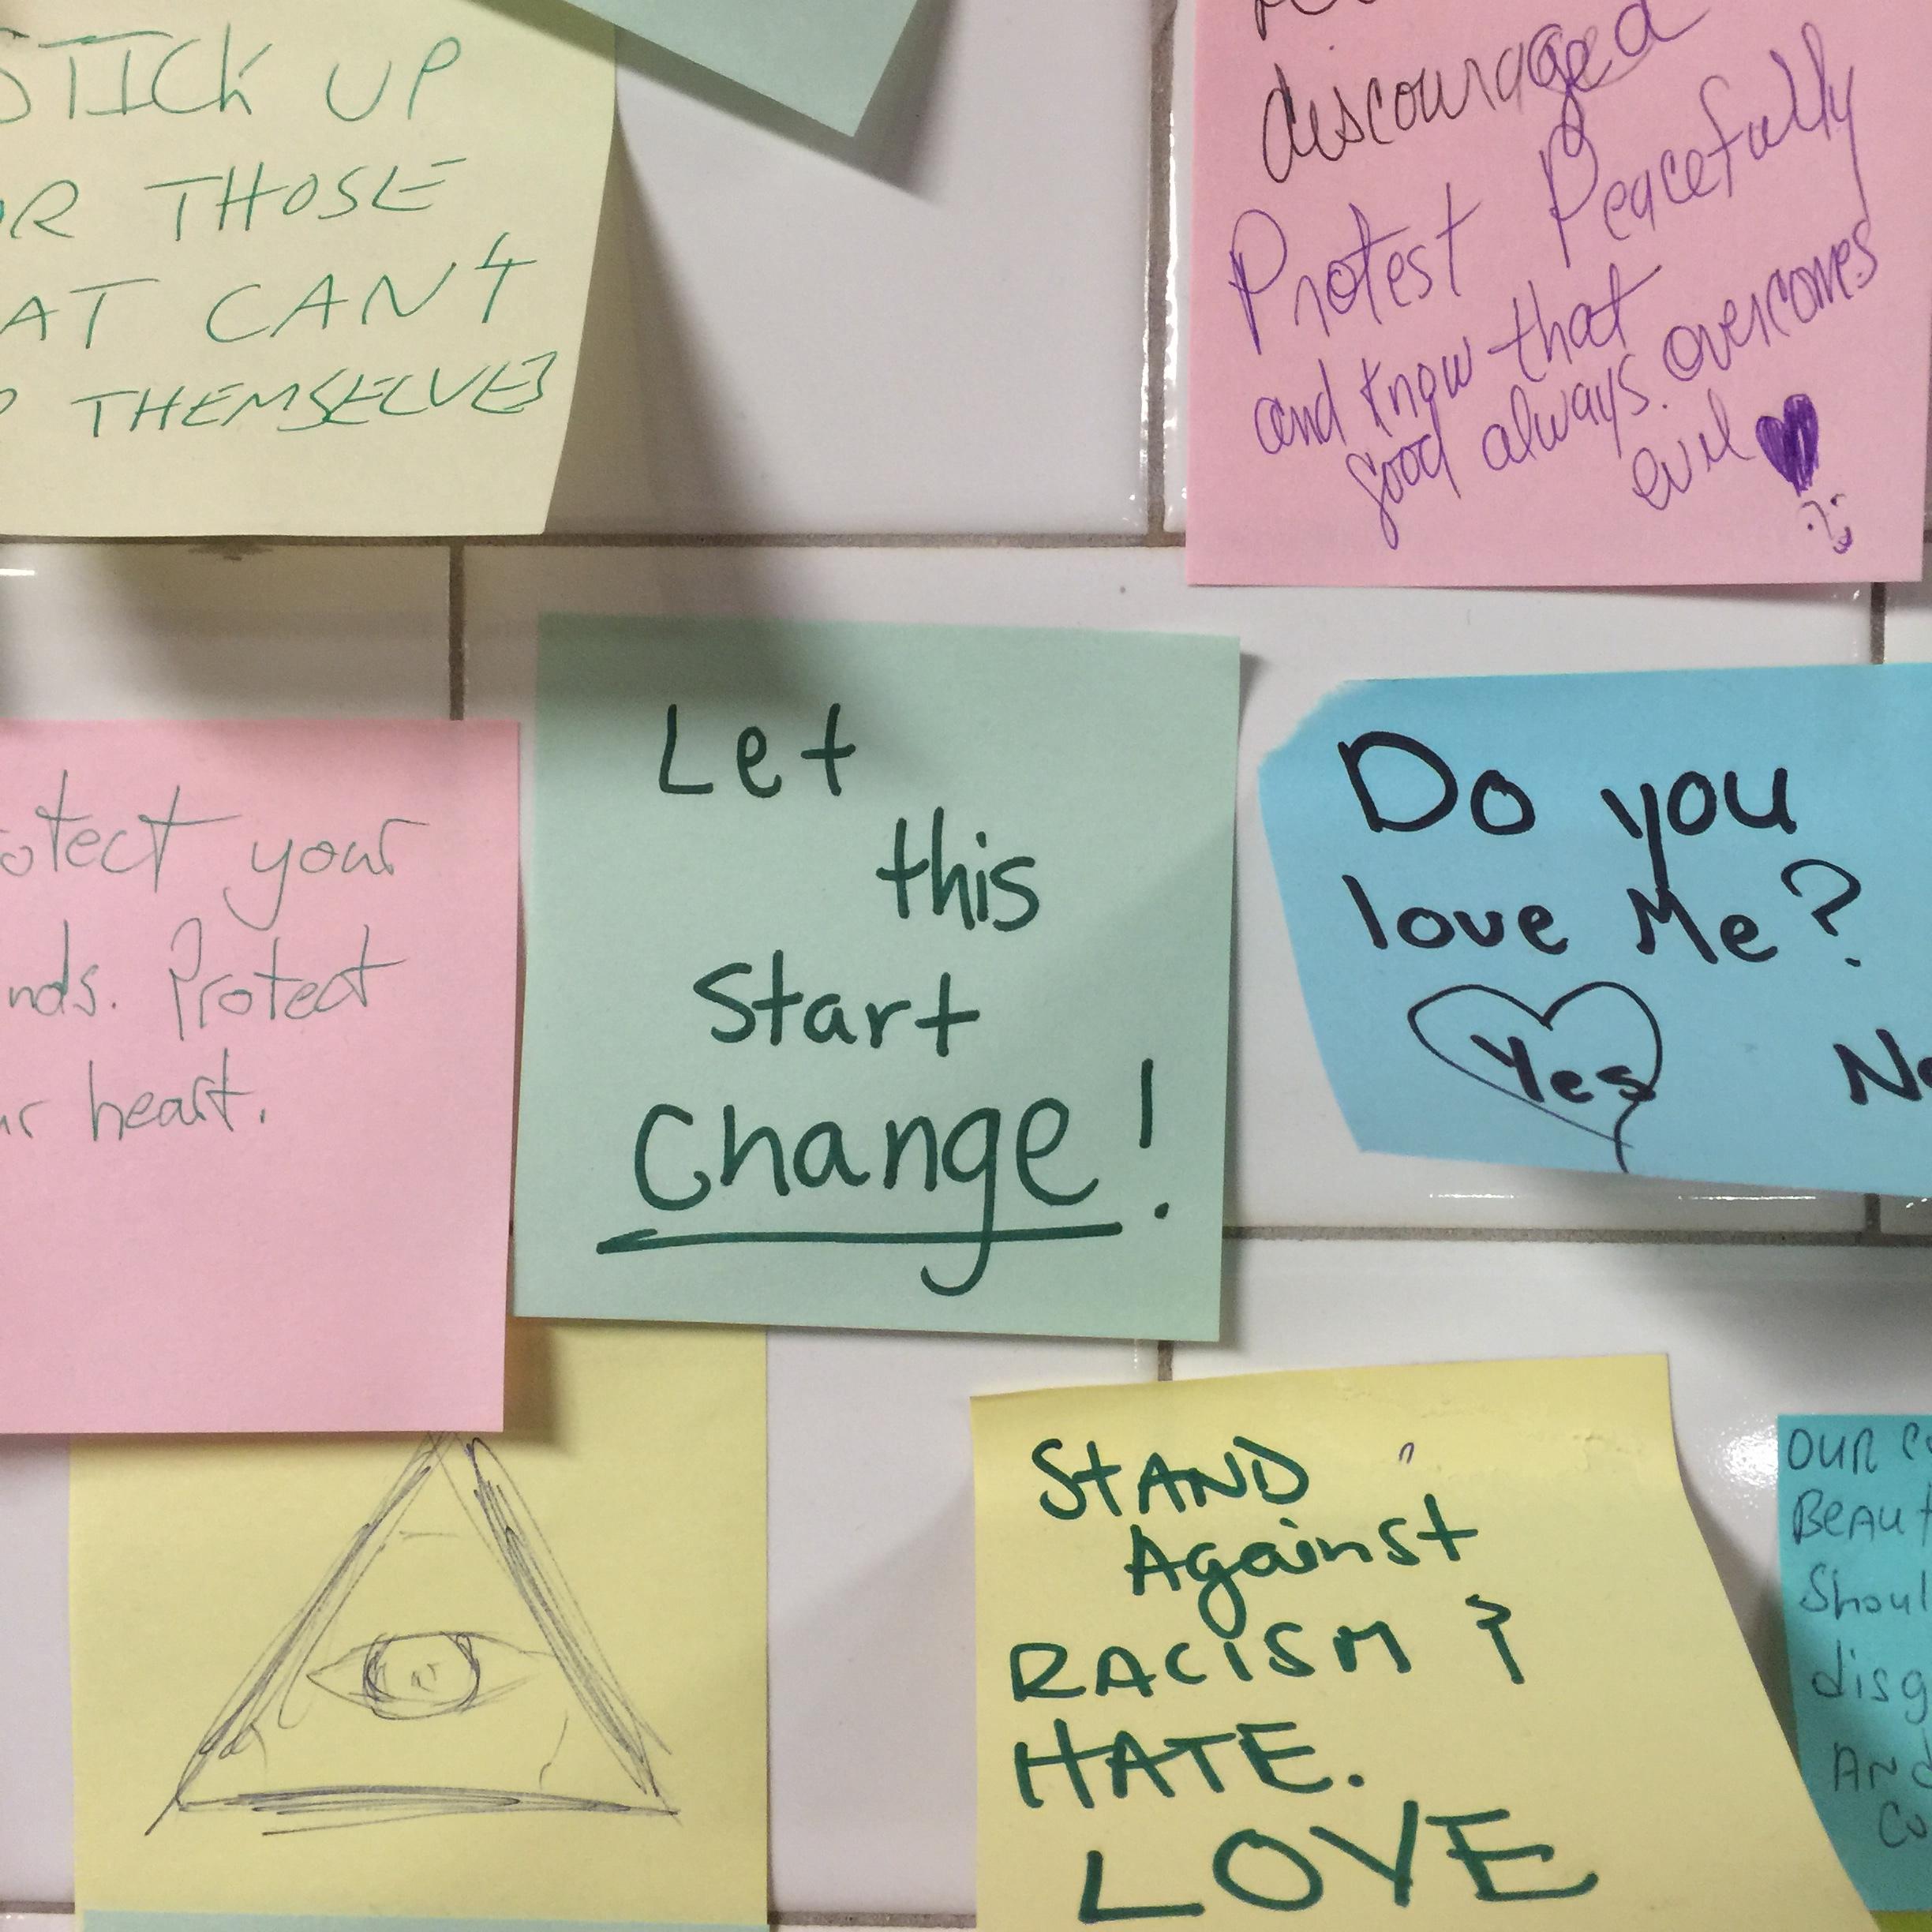 STICK UP
THOSE
CAN't
THEMSELVES
discouraged
Protest Peacefully
and know that
good always overcomes
evil
your
Protect
heart.
Let
this
Start
Change!
Do you
love Me?
Yes
STAND
Against
RACISM &
HATE.
LOVE
OUR